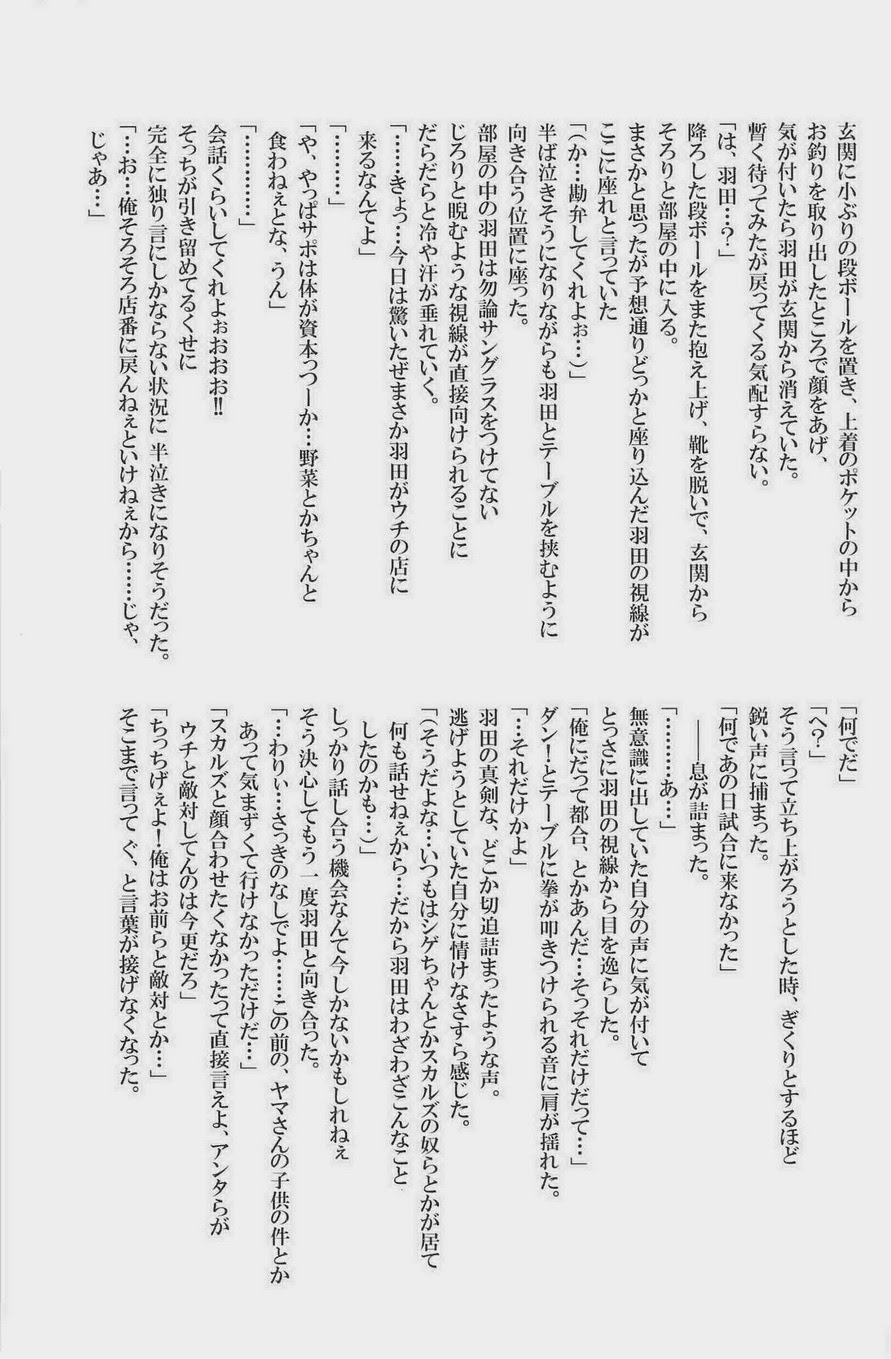 玄関に小ぶりの段ボールを置き、上着のポケットの中から
お釣りを取り出したところで顔をあげ、
気が付いたら羽田が玄関から消えていた。
暫く待ってみたが戻ってくる気配すらない。
「は、羽田…？」
降ろした段ボールをまた抱え上げ、靴を脱いで、玄関から
そろりと部屋の中に入る。
まさかと思ったが予想通りどっかと座り込んだ羽田の視線が
ここに座れと言っていた
「(か…勘弁してくれよぉ…)」
半ば泣きそうになりながらも羽田とテーブルを挟むように
向き合う位置に座った。
部屋の中の羽田は勿論サングラスをつけてない
じろりと睨むような視線が直接向けられることに
だらだらと冷や汗が垂れていく。
「……きょっ…今日は驚いたぜまさか羽田がウチの店に
来るなんてよ」
「………」
「や、やっぱサポは体が資本っつーか…野菜とかちゃんと
食わねぇとな、うん」
「…………」
会話くらいしてくれよぉおおお!!
そっちが引き留めてるくせに
完全に独り言にしかならない状況に 半泣きになりそうだった。
「…お…俺そろそろ店番に戻んねぇといけねぇから……じゃ、
じゃあ…」
「何でだ」
「へ？」
そう言って立ち上がろうとした時、ぎくりとするほど
鋭い声に捕まった。
「何であの日試合に来なかった」
――息が詰まった。
「………あ…」
無意識に出していた自分の声に気が付いて
とっさに羽田の視線から目を逸らした。
「俺にだって都合、とかあんだ…そっそれだけだって…」
ダン！とテーブルに拳が叩きつけられる音に肩が揺れた。
「…それだけかよ」
羽田の真剣な、どこか切迫詰まったような声。
逃げようとしていた自分に情けなさすら感じた。
「(そうだよな…いつもはシゲちゃんとかスカルズの奴らとかが居て
何も話せねぇから…だから羽田はわざわざこんなこと
したのかも…)」
しっかり話し合う機会なんて今しかないかもしれねぇ
そう決心してもう一度羽田と向き合った。
「…わりぃ…さっきのなしでよ……この前の、ヤマさんの子供の件とか
あって気まずくて行けなかっただけだ…」
「スカルズと顔合わせたくなかったって直接言えよ、アンタらが
ウチと敵対してんのは今更だろ」
「ちっちげぇよ！俺はお前らと敵対とか…」
そこまで言って ぐ、と言葉が接げなくなった。